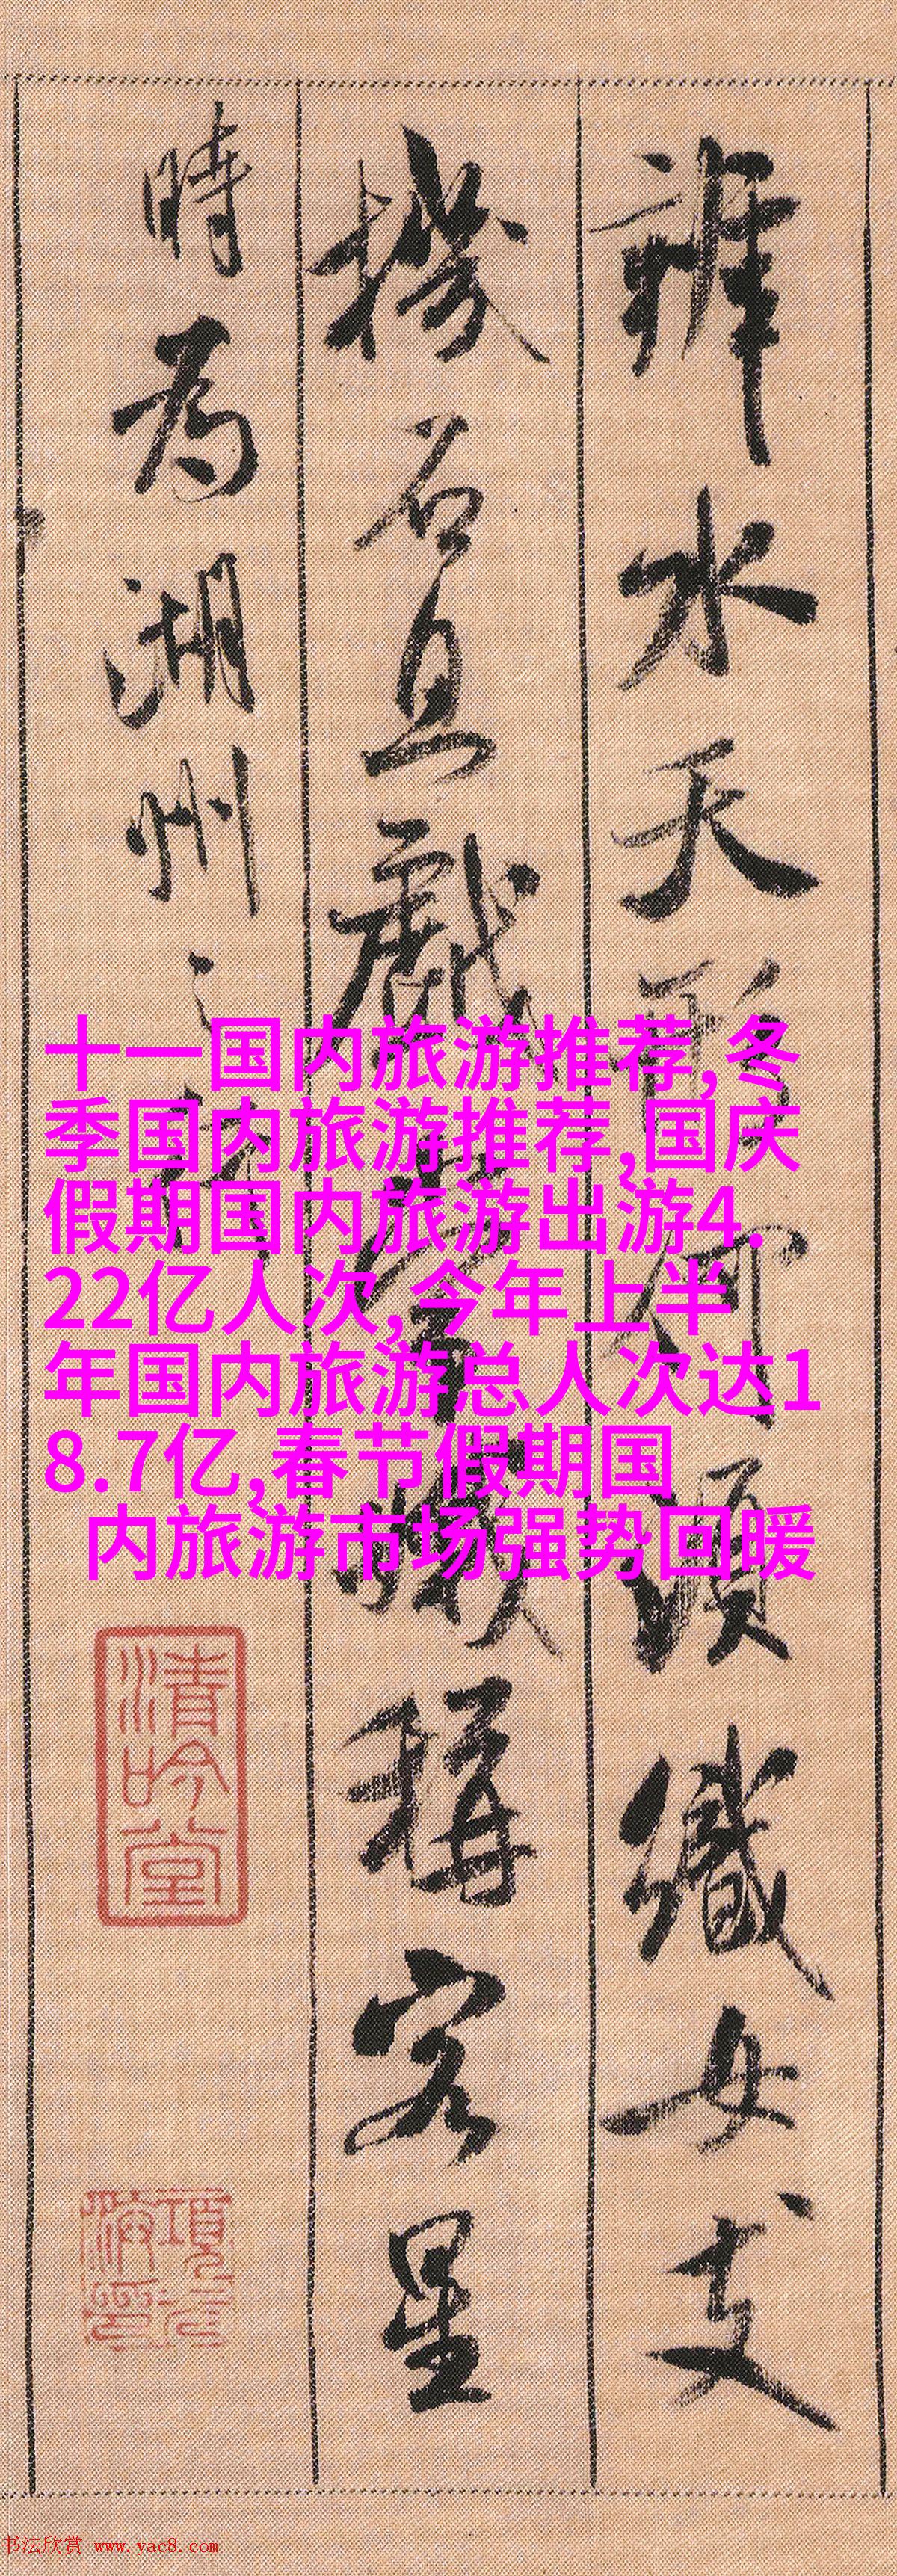 辨水天形何須織女支
機石且戲常娥稱客星
時為湖州之行
十一国内旅游推荐,冬
季国内旅游推荐,国庆
假期国内旅游出游4.
22亿人次,今年上半
年国内旅游总人次达1
8.7亿,春节假期国
内旅游市场强势回暖
清吟堂
书法欣赏 www.yac8.com